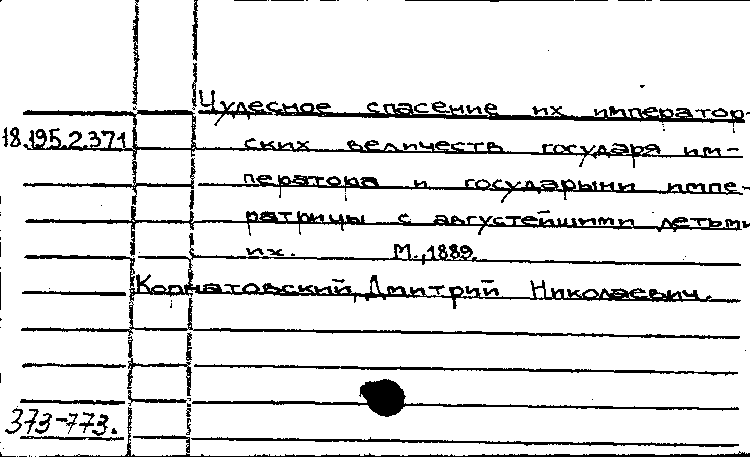 Чудесное спасение их император-
18.195.2.371 ских величеств государя им-
ператора и государыни импе-
ратрицы с августейшими детьми
их. М., 1889.
Корнатовский, Дмитрий Николаевич.
373-773.